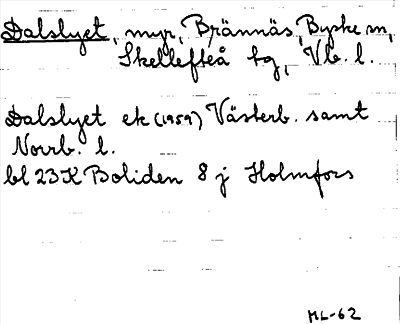 Dalslyet, myr, Brännäs, Byske sn,
Skellefteå tg, Vb. l.
Dalslyet ek (1959) Västerb. samt
Norrb. l.
bl 23K Boliden 8 j Holmfors
ML-62